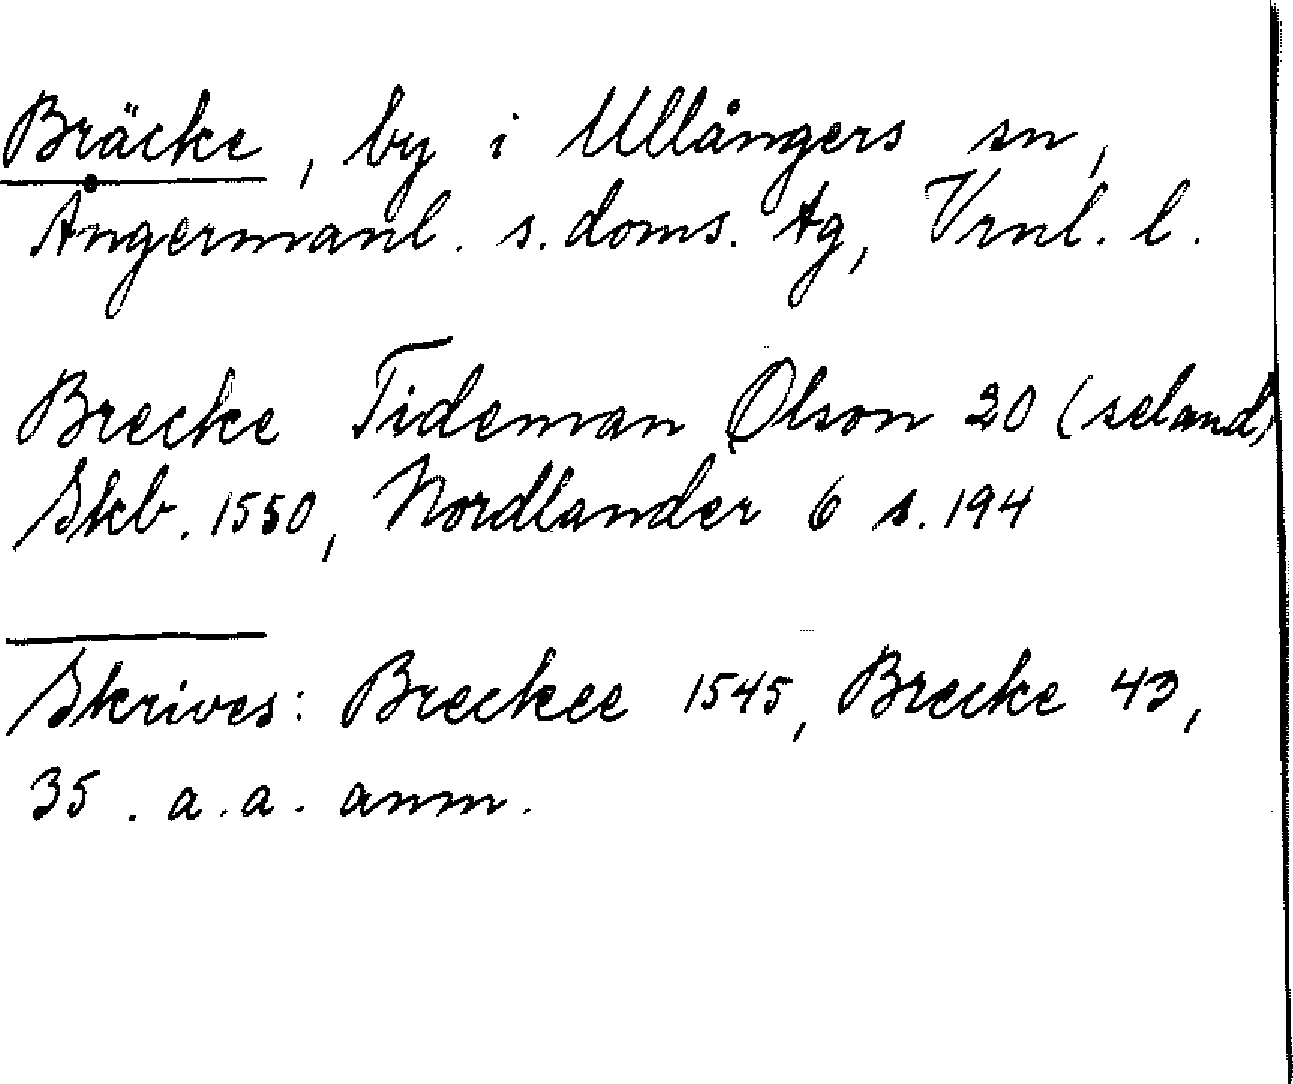 Bräcke, by i Ullångers sn,
Ångermanl. s. doms. tg, Vrnl. l.
Brecke Tideman Olson 20 (seland)
Skb. 1550, Nordlander 6 s. 194
Skrives: Breckee 1545, Brecke 43,
35. a. a. anm.